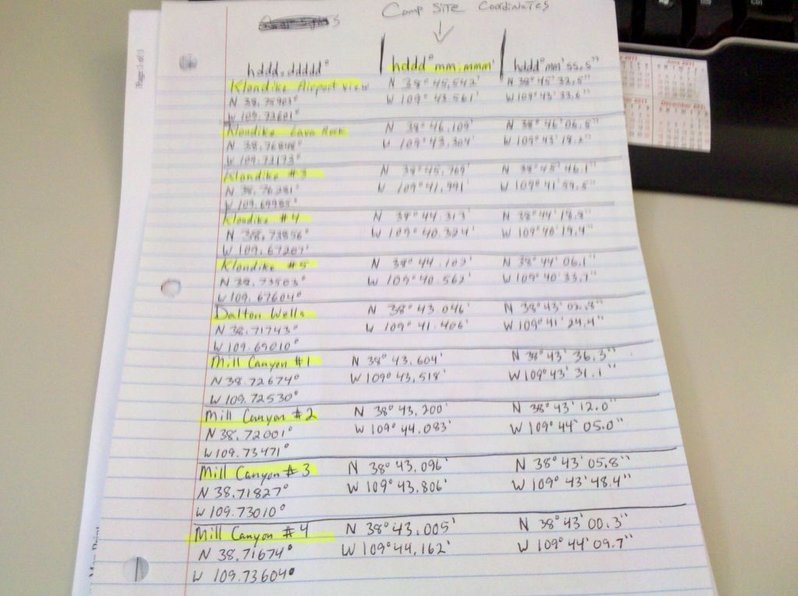 Camp Site Coordinates
hddd.ddddd° hddd°mm.mmm' hddd°mm'ss.s"
Klondike Airport View N 38°45.542' N 38°45'32.5"
N 38.75903° W 109°43.561' W 109°43'33.6"
W 109.72601°
Klondike Lava Rock N 38°46.109' N 38°46'06.5"
N 38.76848° W 109°43.304' W 109°43'18.2"
W 109.72173°
Klondike #3 N 38°45.769' N 38°45'46.1"
N 38.76281° W 109°41.991' W 109°41'59.5"
W 109.69985°
Klondike #4 N 38°44.313' N 38°44'18.8"
N 38.73856° W 109°40.324' W 109°40'19.4"
W 109.67207°
Klondike #5 N 38°44.102' N 38°44'06.1"
N 38.73503° W 109°40.562' W 109°40'33.7"
W 109.67604°
Dalton Wells N 38°43.046' N 38°43'02.8"
N 38.71743° W 109°41.406' W 109°41'24.4"
W 109.69010°
Mill Canyon #1 N 38°43.604' N 38°43'36.3"
N 38.72674° W 109°43.518' W 109°43'31.1"
W 109.72530°
Mill Canyon #2 N 38°43.200' N 38°43'12.0"
N 38.72001° W 109°44.083' W 109°44'05.0"
W 109.73471°
Mill Canyon #3 N 38°43.096' N 38°43'05.8"
N 38.71827° W 109°43.806' W 109°43'48.4"
W 109.73010°
Mill Canyon #4 N 38°43.005' N 38°43'00.3"
N 38.71674° W 109°44.162' W 109°44'09.7"
W 109.73604°